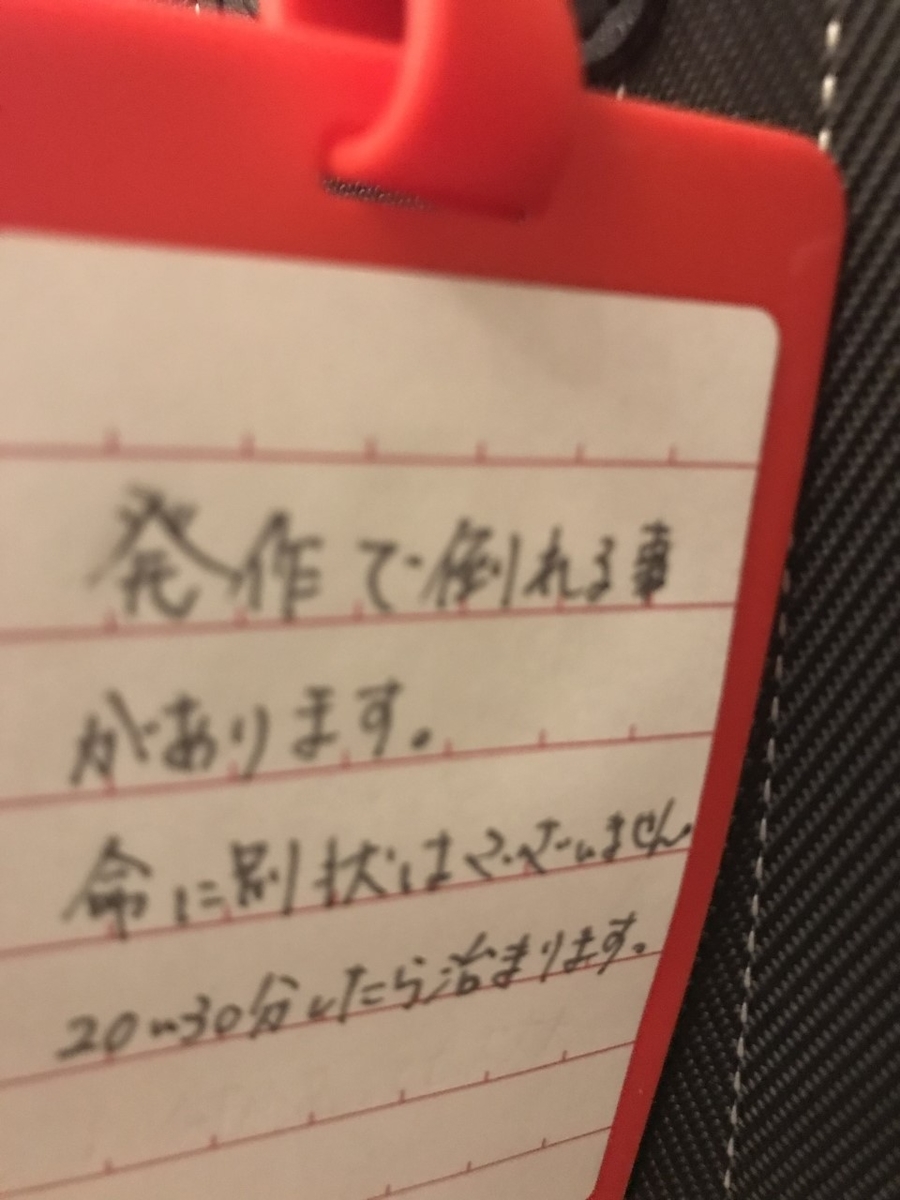 発作で倒れる事
があります。
命に別状はございません。
20~30分したら治まります。